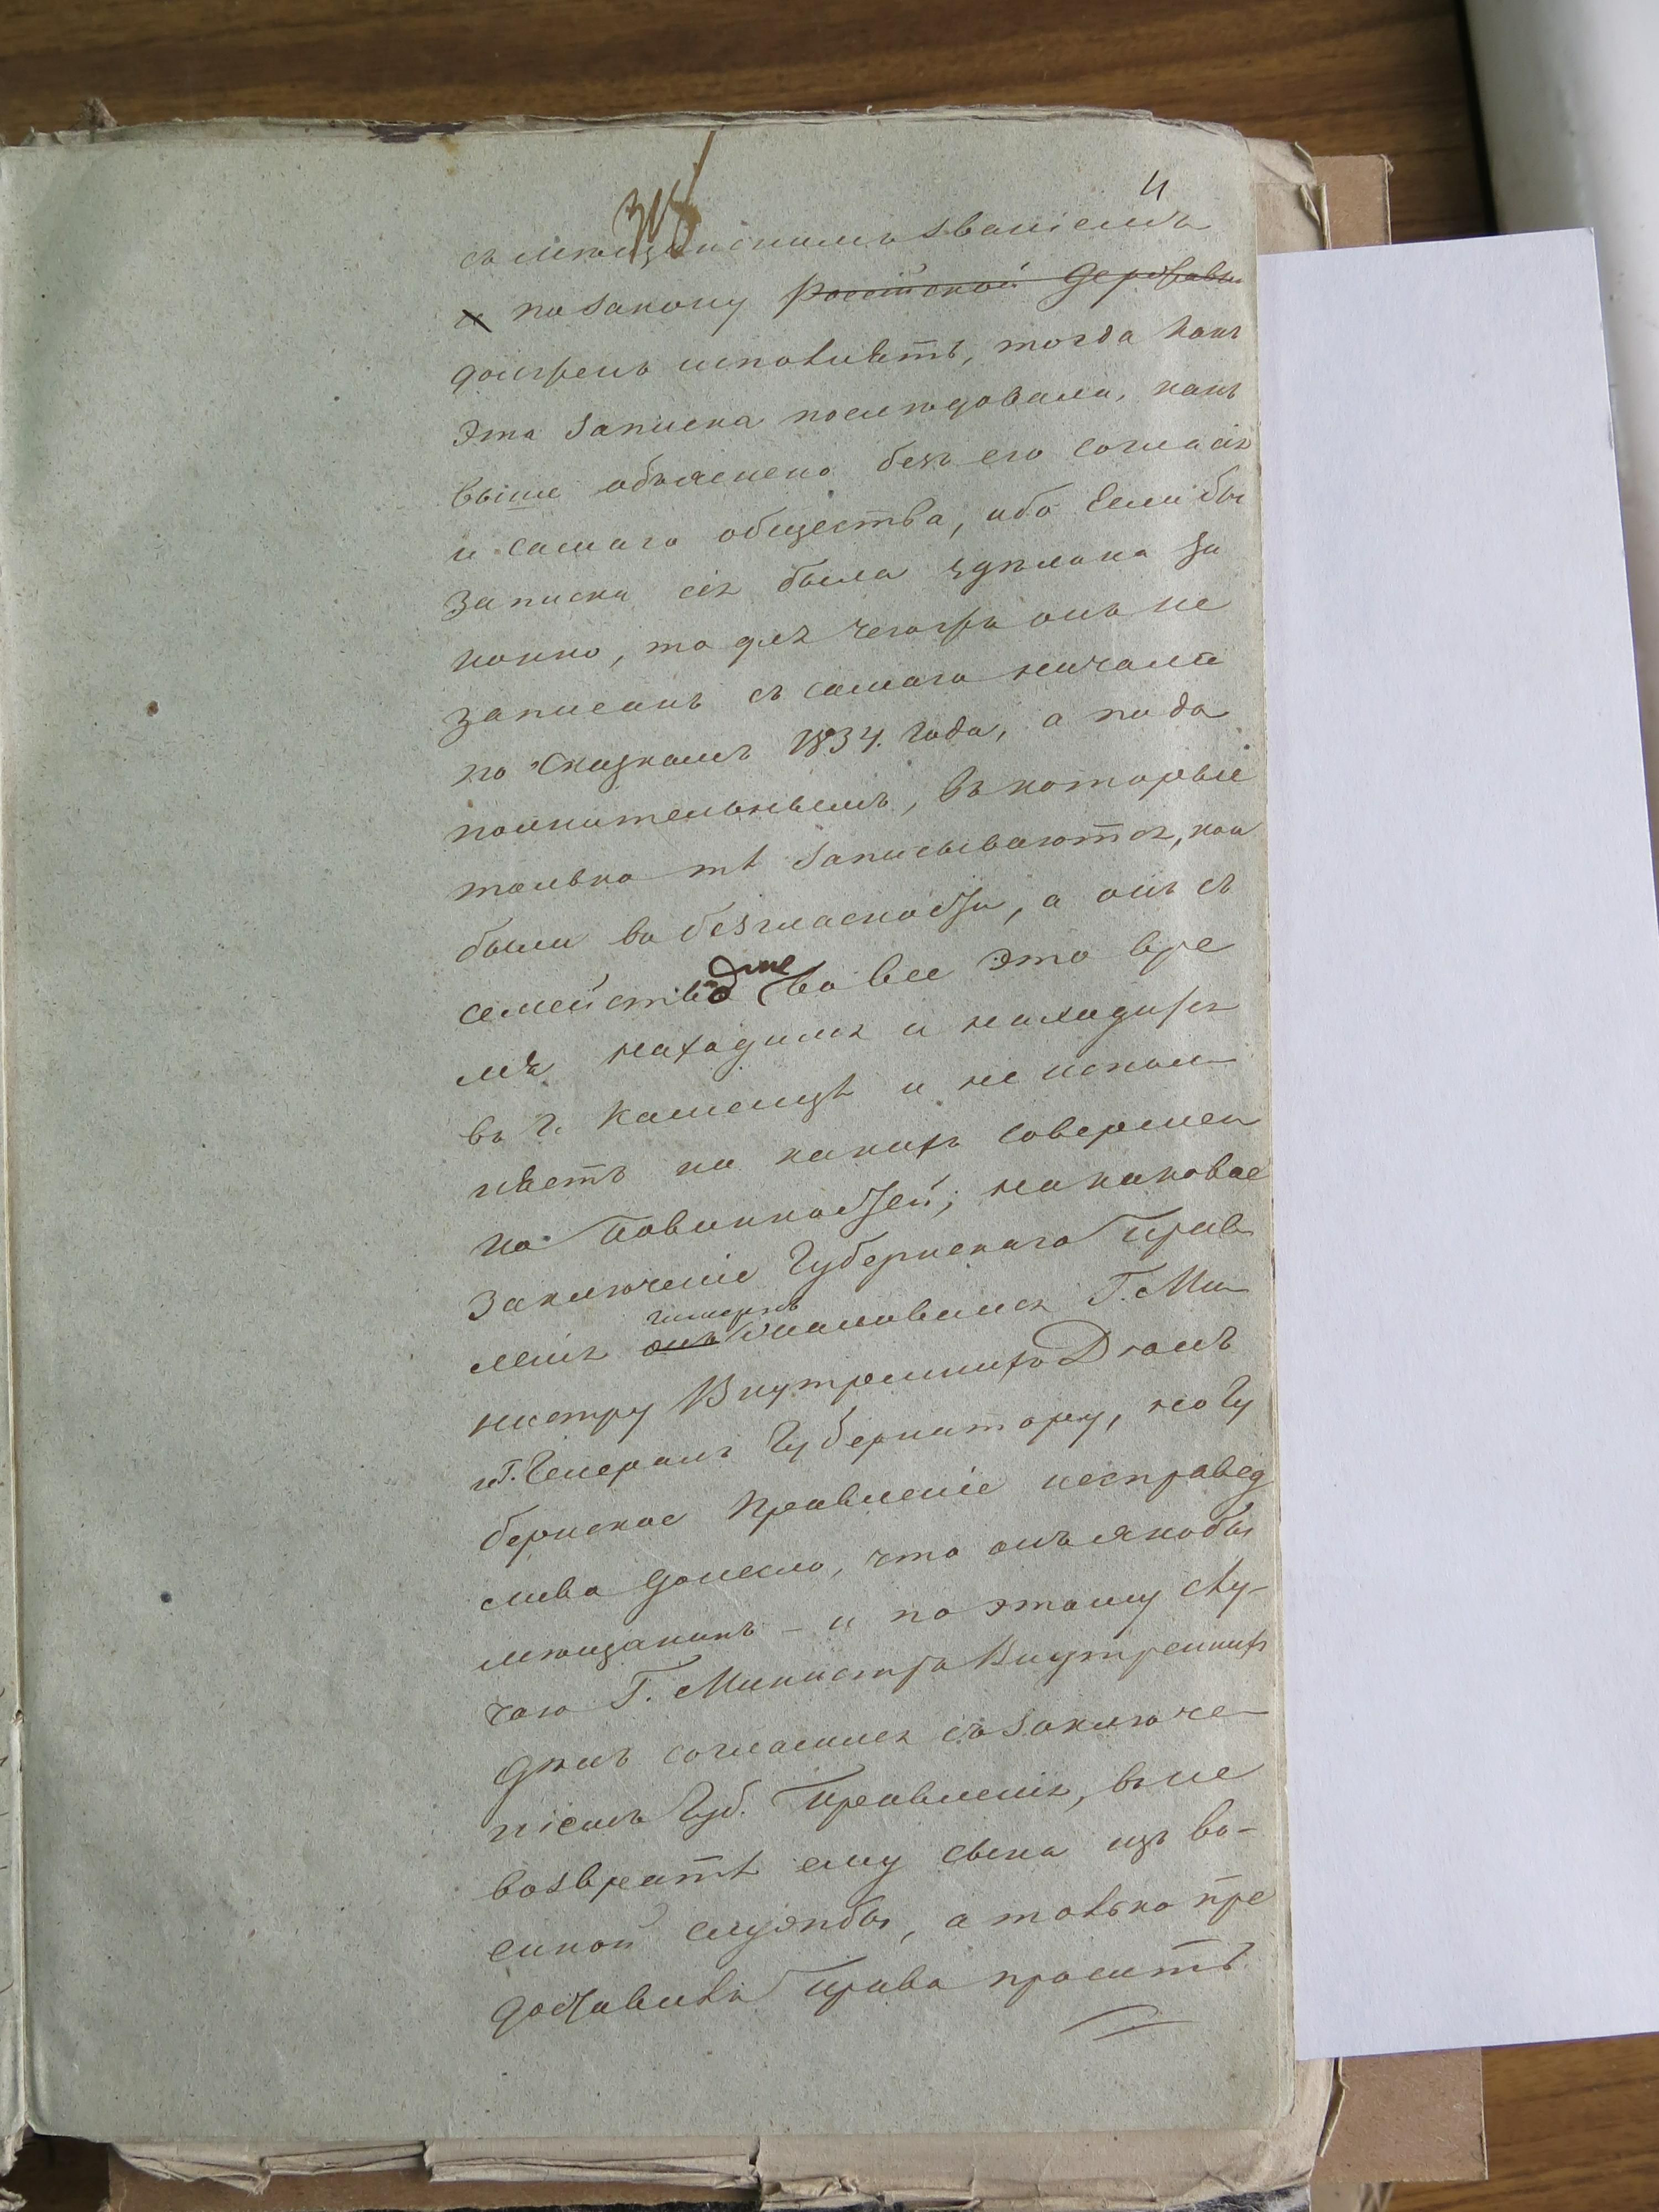 4
318
съ мѣщанскимъ званіемъ
и по закону Россійской Державы
долженъ исполнять, тогда какъ
Эта записка последовала, какъ
выше объяснено безъ его согласія
и самаго общества, ибо Если бы
записка сія была здѣлана за
конно, то для чегожъ онъ не
записанъ съ самаго начала
по Сказкамъ 1834. Года, а по до
полнительнымъ, въ которые
только тѣ записываются, кои
были въ безгласности, а онъ съ
семействомъ во все Это вре
мя находился и находится
въ г. Каменцѣ и не испол
няетъ ни какихъ совершен
но Повинностей; на каковое
Заключеніе Губернскаго Прав
ленія онъ жаловался Г. Ми
нистру Внутреннихъ Дѣлъ
и Г. Генералъ Губернатору, но Гу
бернское Правленіе несправед
ливо донесло, что онъ якобы
мѣщанинъ – и по этому слу-
чаю Г. Министръ Внутреннихъ
Дѣлъ согласился съ заключе-
ніемъ Губ. Правленія, въ не
возвратѣ ему сына изъ во-
енной службы, а только пре
доставилъ Право просить